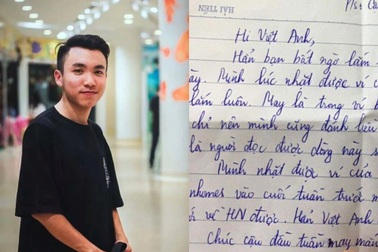 P/s: Cả
HẢI TIẾN
Hi Việt Anh,
Hẳn bạn bất ngờ lắm
này. Mình lúc nhặt được ví c
lắm luôn. May là trong ví b
chỉ nên mình cũng đánh liều
là người đọc được dòng này s
Mình nhặt được ví của
nhomes vào cuối tuần trước m
á về HN được. Hẳn Việt Anh
Chúc cậu đầu tuần may mắn